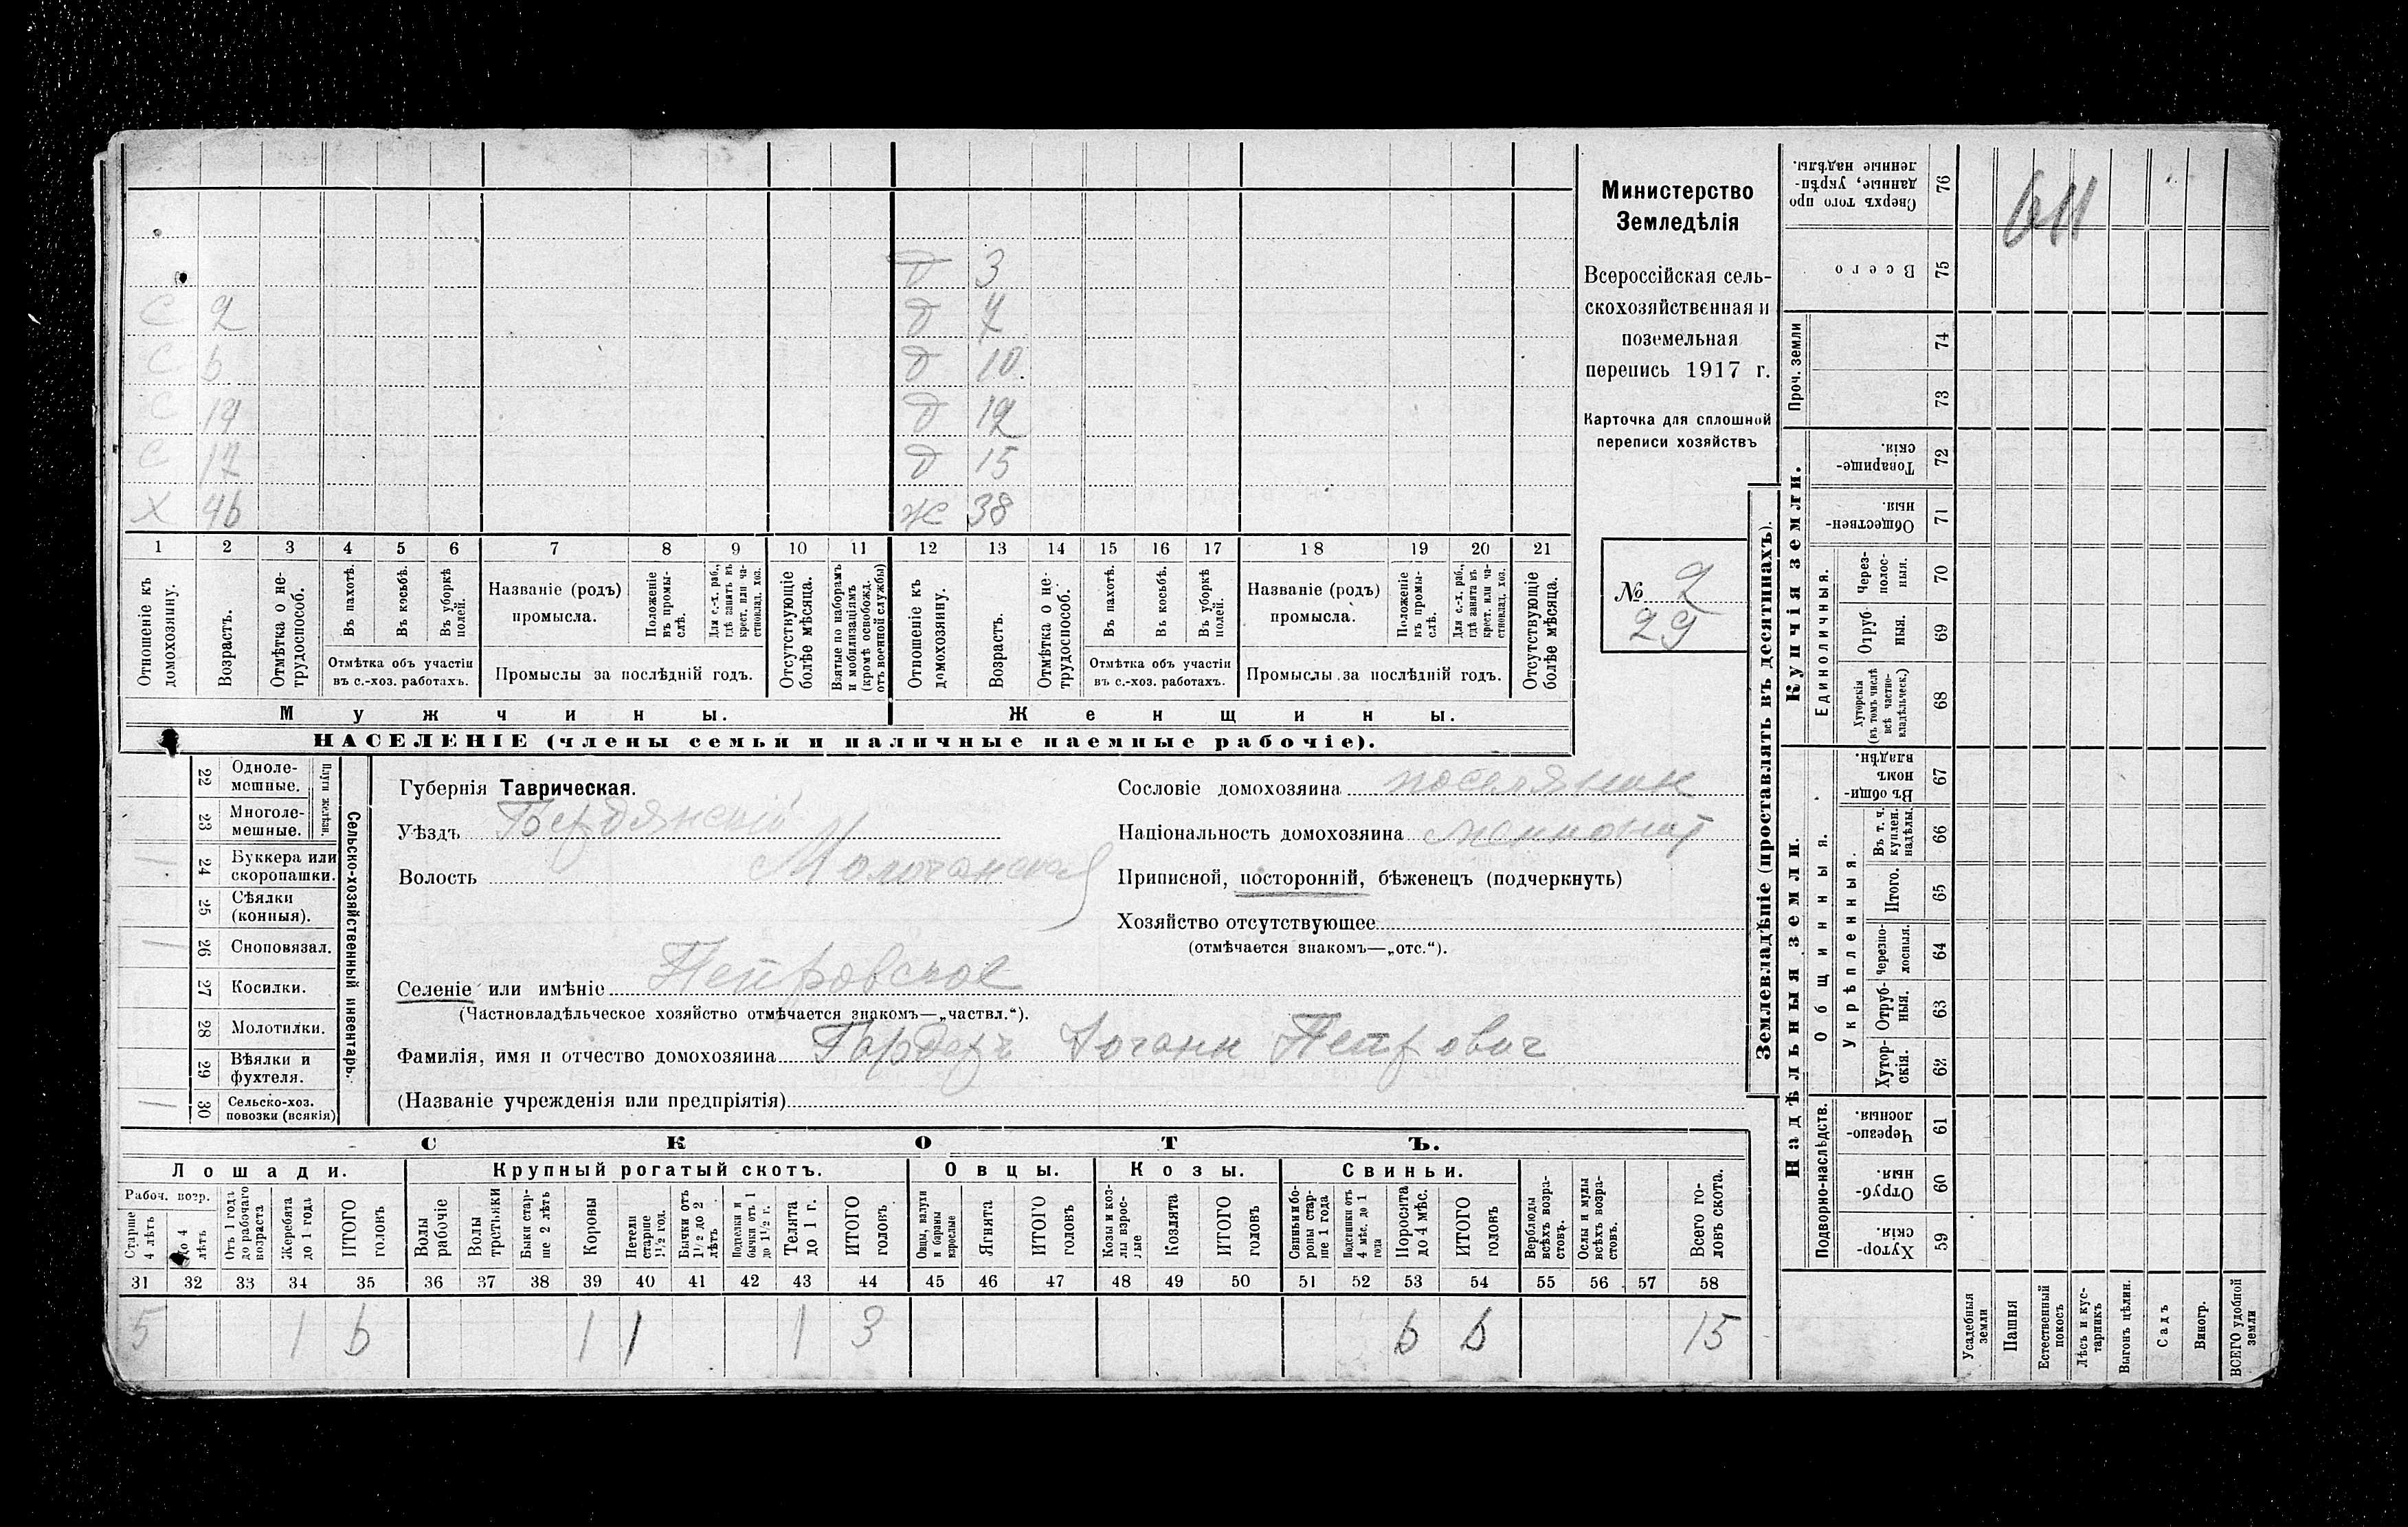 Т 3
С 2 Д 7
С 6 Д 10
С 14 Д 12
С 17 Д 15
Х 46 Ж 38
1 2 3 4 5 6 7 8 9 10 11 12 13 14 15 16 17 18 19 20 21
Отношеніе къ домохозяину.
Возрастъ.
Отмѣтка о не-трудоспособ.
Въ пахотѣ.
Въ косьбѣ.
Въ уборкѣ полей.
Отмѣтка объ участіи
въ с.-хоз. работахъ.
Названіе (родъ)
промысла.
Положеніе въ промы-слѣ.
Для с.-х. раб., гдѣ занятъ въ крест. или ча-стновлад. хоз.
Промыслы за послѣдній годъ.
Отсутствующіе болѣе мѣсяца.
Взятые по наборамъ и мобилизаціямъ (кромѣ освобожд. отъ военной службы)
Отношеніе къ домохозяину.
Возрастъ.
Отмѣтка о не-трудоспособ.
Въ пахотѣ.
Въ косьбѣ.
Въ уборкѣ полей.
Отмѣтка объ участіи
въ с.-хоз. работахъ.
Названіе (родъ)
промысла.
Положеніе въ промы-слѣ.
Для с.-х. раб., гдѣ занята въ крест. или ча-стновлад. хоз.
Промыслы за послѣдній годъ.
Отсутствующіе болѣе мѣсяца.
Мужчины. Женщины.
НАСЕЛЕНІЕ (члены семьи и наличные наемные рабочіе).
Министерство
Земледѣлія
Всероссійская сель-
скохозяйственная и
поземельная
перепись 1917 г.
Карточка для сплошной
переписи хозяйствъ
№ 2
29
22 Одноле-мешные.
23 Многоле-мешные.
Плуги желѣзн.
24 Буккера или скоропашки.
25 Сѣялки (конныя).
26 Сноповязал.
27 Косилки.
28 Молотилки.
29 Вѣялки и фухтеля.
30 Сельско-хоз. повозки (всякія)
Сельско-хозяйственный инвентарь.
Губернія Таврическая.
Уѣздъ Бердянскій
Волость Молочанская
Сословіе домохозяина поселянин
Національность домохозяина меннонит
Приписной, посторонній, бѣженецъ (подчеркнуть)
Хозяйство отсутствующее
(отмѣчается знакомъ—„отс.“).
Селеніе или имѣніе Петровское
(Частновладѣльческое хозяйство отмѣчается знакомъ—„частвл.“).
Фамилія, имя и отчество домохозяина Гардеръ Іоганн Петрович
(Названіе учрежденія или предпріятія)
СКОТЪ.
Лошади. Крупный рогатый скотъ. Овцы. Козы. Свиньи.
Рабоч. возр.
Старше 4 лѣтъ
До 4 лѣтъ
Отъ 1 года до рабочаго возраста
Жеребята до 1 года
ИТОГО головъ
Волы рабочіе
Волы третьяки
Быки стар-ше 2 лѣтъ
Коровы
Нетели старше 1½ год.
Бычки отъ 1½ до 2 лѣтъ
Подтелки и бычки отъ 1 до 1½ г.
Телята до 1 г.
ИТОГО головъ
Овцы, валухи и бараны взрослые
Ягнята
ИТОГО головъ
Козы и коз-лы взрос-лые
Козлята
ИТОГО головъ
Свиньи и бо-ровы стар-ше 1 года
Подсвинки отъ 4 мѣс. до 1 года
Поросята до 4 мѣс.
ИТОГО головъ
Верблюды всѣхъ возра-стовъ.
Ослы и мулы всѣхъ возра-стовъ.
Всего го-ловъ скота.
31 32 33 34 35 36 37 38 39 40 41 42 43 44 45 46 47 48 49 50 51 52 53 54 55 56 57 58
5 1 6 1 1 1 3 6 6 15
Землевладѣніе (проставлять въ десятинахъ).
Надѣльныя земли. Купчія земли.
Проч. земли
Подворно-наслѣдств.
Общинныя.
Укрѣпленныя.
Единоличныя.
76 Сверхъ того про-данные, укрѣп-ленные надѣлы.
75 Всего
74
73
72 Товарище-скія.
71 Обществен-ныя.
70 Через-полос-ныя.
69 Отруб-ныя.
68 Хуторскія (въ томъ числѣ всѣ частно-владѣльческ.)
67 Въ общи-номъ владѣн.
66 Въ т. ч. куплен. надѣлы.
65 Итого.
64 Черезпо-лосныя.
63 Отруб-ныя.
62 Хутор-скія.
61 Черезпо-лосныя.
60 Отруб-ныя.
59 Хутор-скія.
Усадебныя земли
Пашня
Естественный покосъ
Лѣсъ и кус-тарникъ
Выгонъ цѣлин.
Садъ
Виногр.
ВСЕГО удобной земли